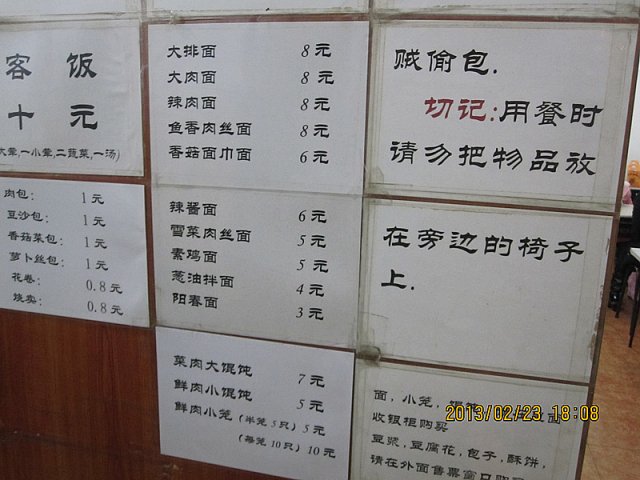 客 饭
十 元
大荤,一小荤,二蔬菜,一汤)
肉包: 1元
豆沙包: 1元
香菇菜包: 1元
萝卜丝包: 1元
花卷: 0.8元
烧卖: 0.8元
大排面 8元
大肉面 8元
辣肉面 8元
鱼香肉丝面 8元
香菇面巾面 6元
辣酱面 6元
雪菜肉丝面 5元
素鸡面 5元
葱油拌面 4元
阳春面 3元
菜肉大馄饨 7元
鲜肉小馄饨 5元
鲜肉小笼(半笼5只)5元
(每笼10只)10元
贼偷包.
切记:用餐时
请勿把物品放
在旁边的椅子
上.
面,小笼,
收银柜购买
豆浆,豆腐花,包子,酥饼,
请在外面售票窗口购
2013/02/23 18:08